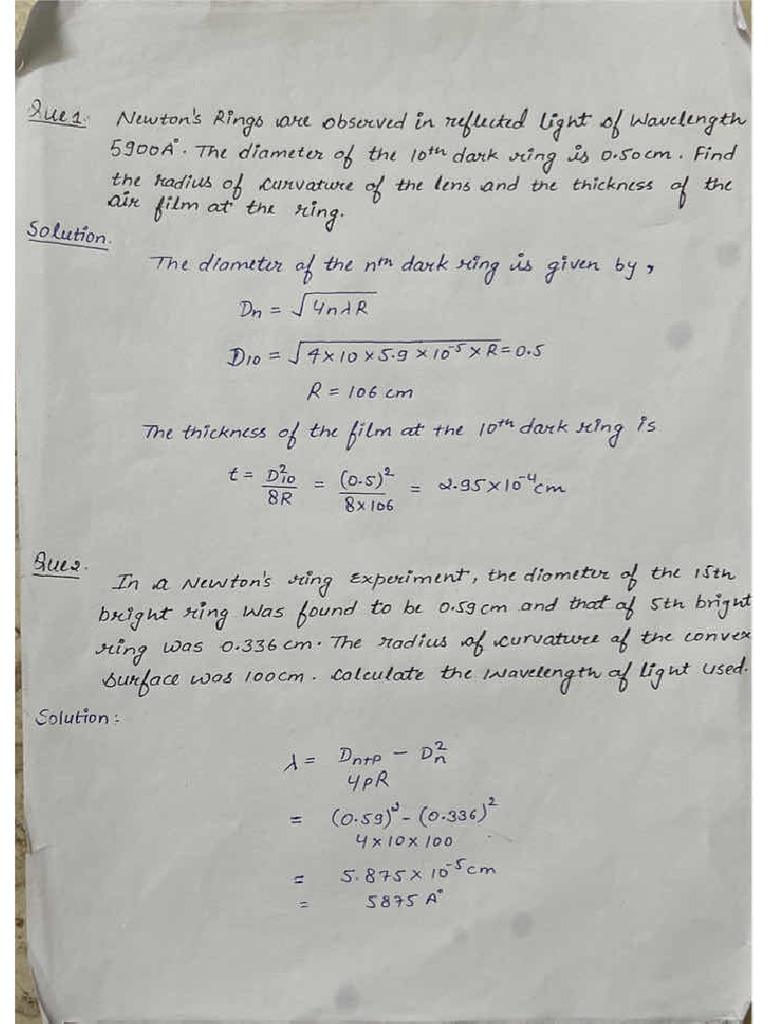 Que1. Newton's Rings are observed in reflected light of Wavelength
5900A°. The diameter of the 10th dark ring is 0.50cm. Find
the radius of curvature of the lens and the thickness of the
air film at the ring.
Solution.
The diameter of the nth dark ring is given by,
Dn = √4nλR
D10 = √4×10×5.9×10⁻⁵×R = 0.5
R = 106 cm
The thickness of the film at the 10th dark ring is
t = D²10/8R = (0.5)²/8×106 = 2.95×10⁻⁴cm
Que2. In a Newton's ring Experiment, the diameter of the 15th
bright ring was found to be 0.59cm and that of 5th bright
ring was 0.336cm. The radius of curvature of the convex
surface was 100cm. Calculate the wavelength of light used.
Solution:
λ = Dn+p − D²n
4pR
= (0.59)² − (0.336)²
4×10×100
= 5.875×10⁻⁵cm
= 5875 A°